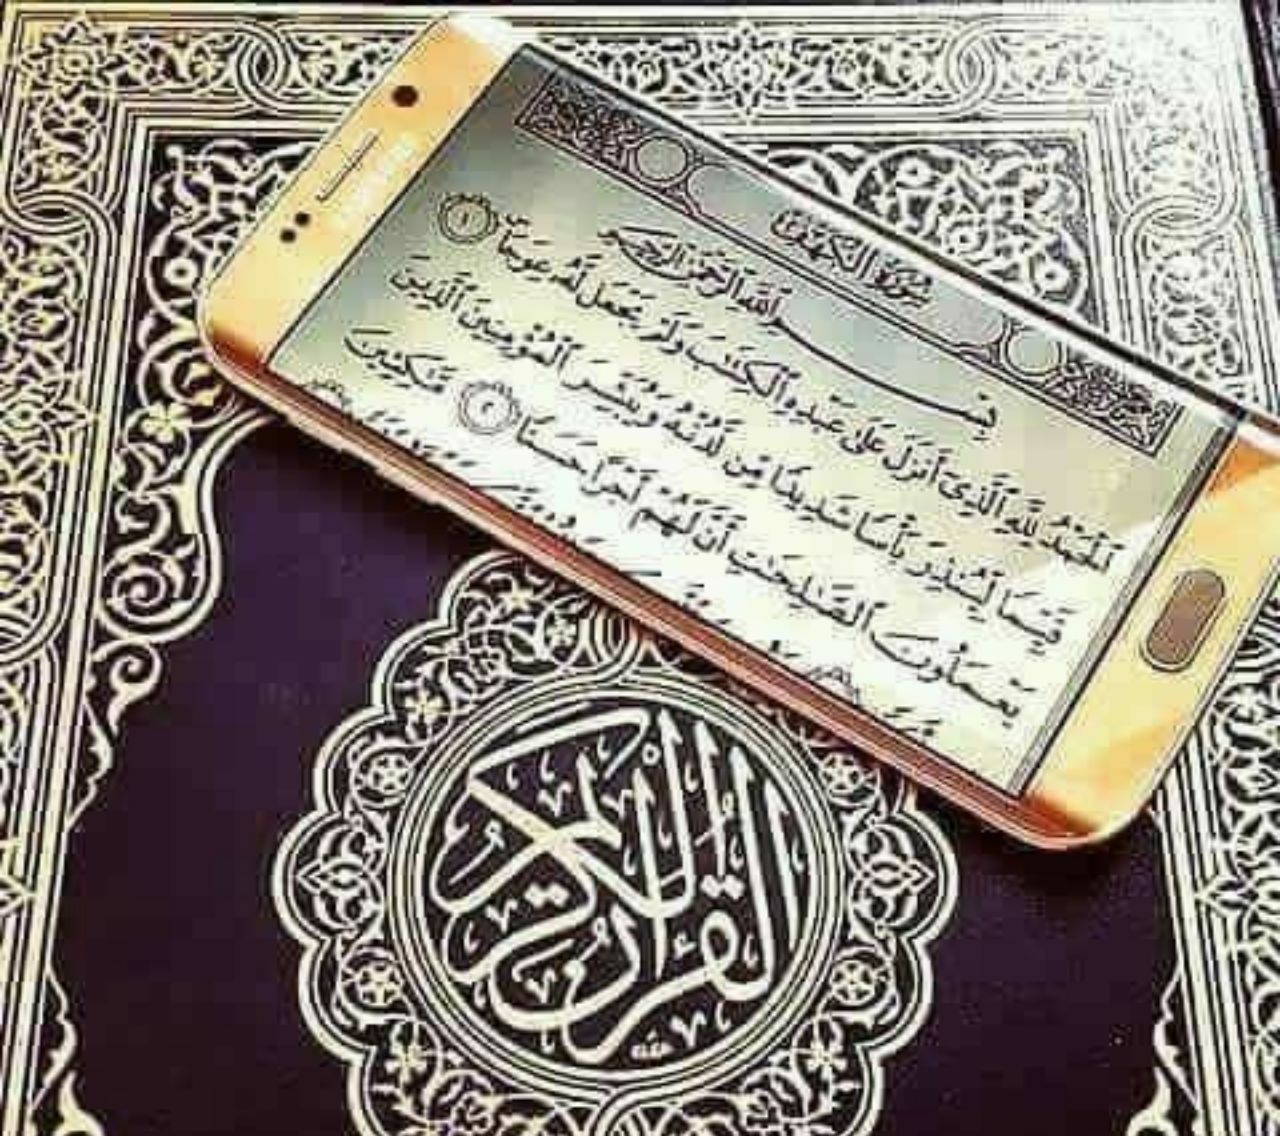 سُورَةُ الكَهْفِ
بِسْمِ اللَّهِ الرَّحْمَٰنِ الرَّحِيمِ
الْحَمْدُ لِلَّهِ الَّذِي أَنزَلَ عَلَىٰ عَبْدِهِ الْكِتَابَ وَلَمْ يَجْعَل لَّهُ عِوَجًا ۜ ١
قَيِّمًا لِّيُنذِرَ بَأْسًا شَدِيدًا مِّن لَّدُنْهُ وَيُبَشِّرَ الْمُؤْمِنِينَ الَّذِينَ
يَعْمَلُونَ الصَّالِحَاتِ أَنَّ لَهُمْ أَجْرًا حَسَنًا ٢ مَّاكِثِينَ
القرآن الكريم